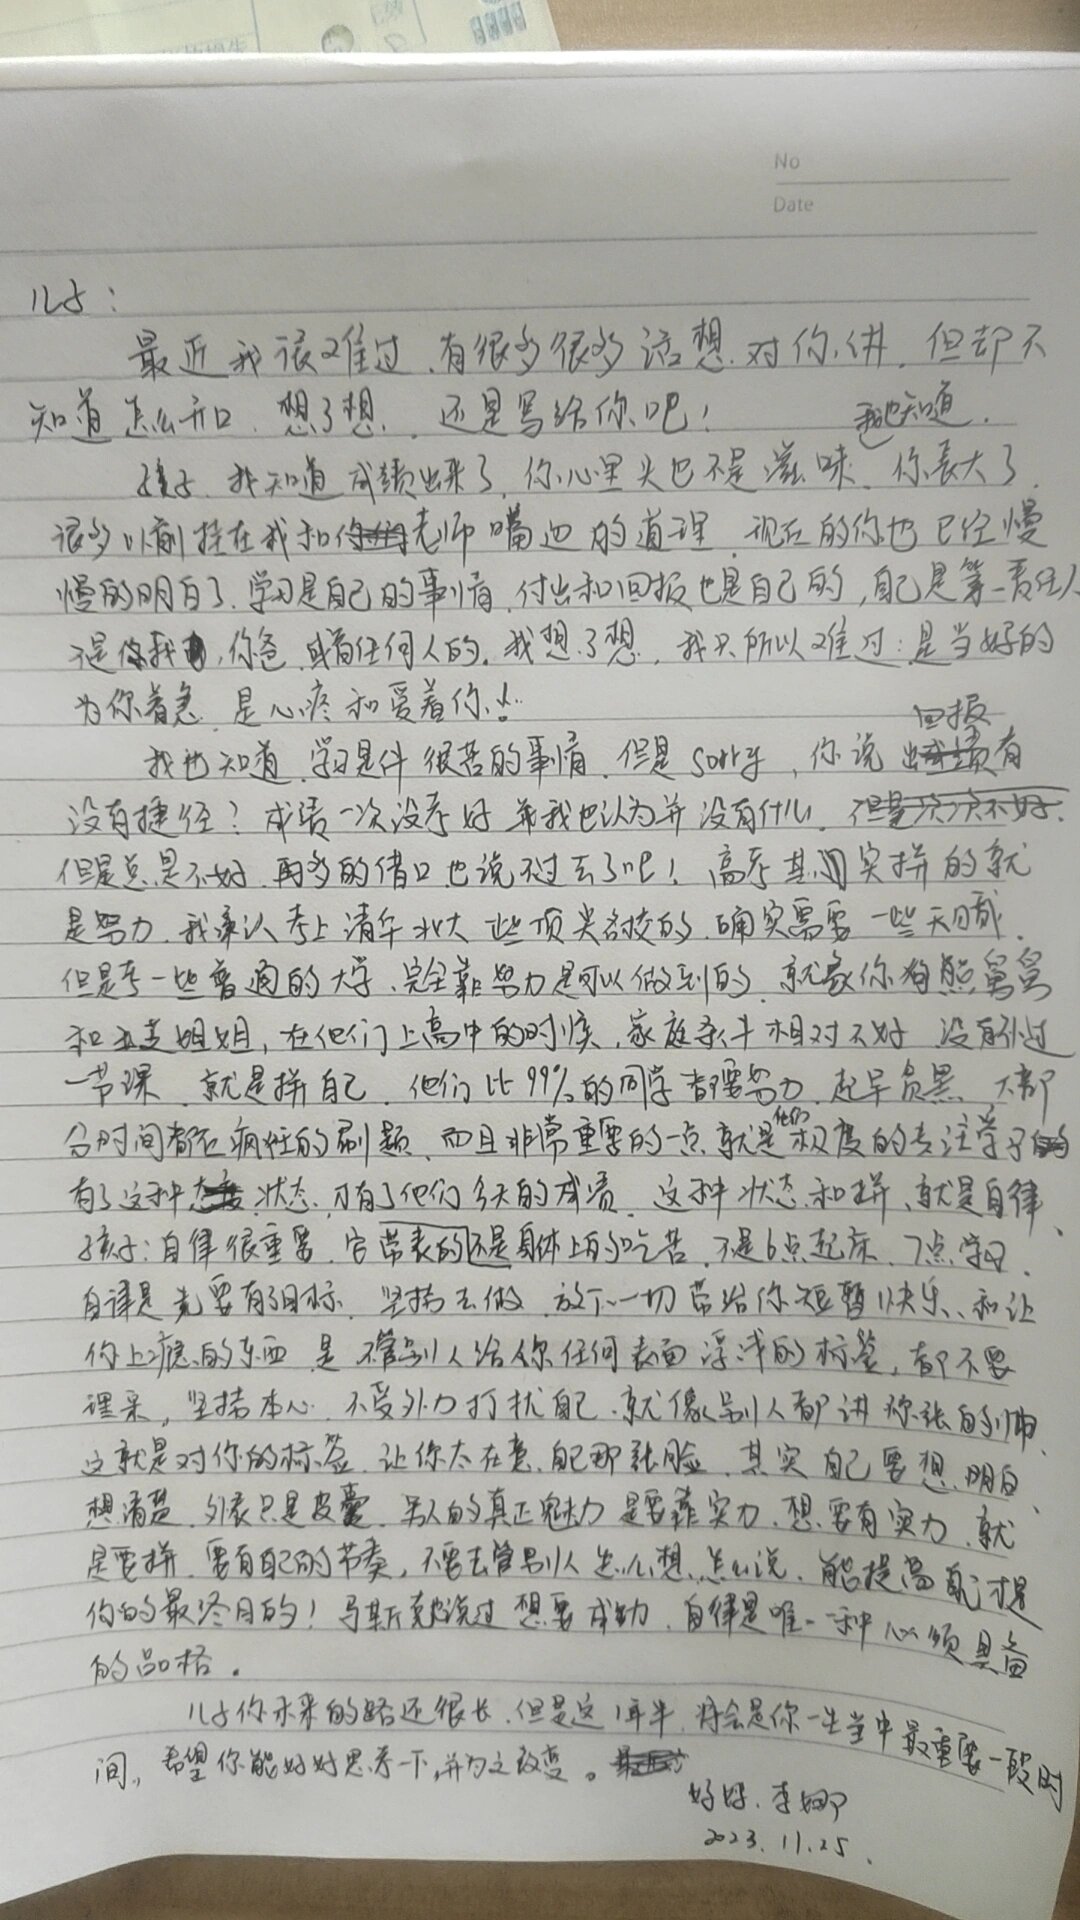 No
Date
儿子：
最近我很难过，有很多很多话想对你讲，但却不
知道怎么开口，想了想，还是写给你吧！
我也知道，
孩子，我知道成绩出来了，你心里头也不是滋味，你长大了，
很多以前挂在我和老师嘴边的道理，现在的你也已经慢
慢的明白了，学习是自己的事情，付出和回报也是自己的，自己是第一责任人
不是我，你爸，或者任何人的。我想了想，我只所以难过：是当妈的
为你着急，是心疼和爱着你！
回报
我也知道，学习是件很苦的事情，但是sorry，你说有
没有捷径？成绩一次没考好，我也认为并没有什么，但是次次不好，
但是总是不好，再多的借口也说不过去了吧！高考其实拼的就
是努力，我承认考上清华北大一些顶尖名校的，确实需要一些天赋，
但是考一些普通的大学，完全靠努力是可以做到的，就象你熊舅舅
和姐姐，在他们上高中的时候，家庭条件相对不好，没有补过
一节课，就是拼自己，他们比99%的同学都要努力，起早贪黑，大部
分时间都在疯狂的刷题，而且非常重要的一点就是他们极度的专注学习
有了这种状态，才有了他们今天的成绩，这种状态和拼，就是自律，
孩子：自律很重要，它带表的不是身体上的吃苦，不是6点起床，7点学习，
自律是先要有了目标，坚持去做，放下一切带给你短暂快乐、和让
你上瘾的东西，是不管别人给你任何表面浮浅的标签，都不要
理采，坚持本心，不受外力打扰自己，就像别人都讲你张的帅，
这就是对你的标签，让你太在意，自己那张脸，其实自己要想明白、
想清楚，外表只是皮囊，男人的真正魅力是要靠实力，想要有实力，就
是要拼，要有自己的节奏，不要去管别人怎么想，怎么说，能提高自己才是
你的最终目的！马斯克也说过想要成功，自律是唯一一种必须具备
的品格。
儿子你未来的路还很长，但是这1年半，将会是你一生当中最重要一段时
间，希望你能好好思考一下，并为之改变。
妈妈：李娜
2023.11.25.